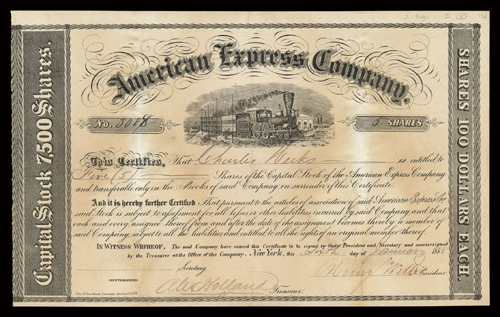 American Express Company.
Capital Stock 7,500 Shares.
SHARES 100 DOLLARS EACH.
No. 3088
5 SHARES
This Certifies, That Charles Weeks is entitled to
Five (5) Shares of the Capital Stock of the American Express Company
and transferable only on the Books of said Company on surrender of this Certificate.
And it is hereby further Certified That pursuant to the articles of association of said American Express Co
said Stock is subject to assessment for all losses or other liabilities incurred by said Company and that
each and every assignee thereof from and after the date of the assignment becomes thereby a member of
said Company, subject to all the liabilities and entitled to all the rights of an original member thereof.
In Witness Whereof, The said Company have caused this Certificate to be signed by their President and Secretary and countersigned
by the Treasurer at the Office of the Company, New York, this day of January 185
Secretary
President
COUNTERSIGNED
Alex Holland
Treasurer